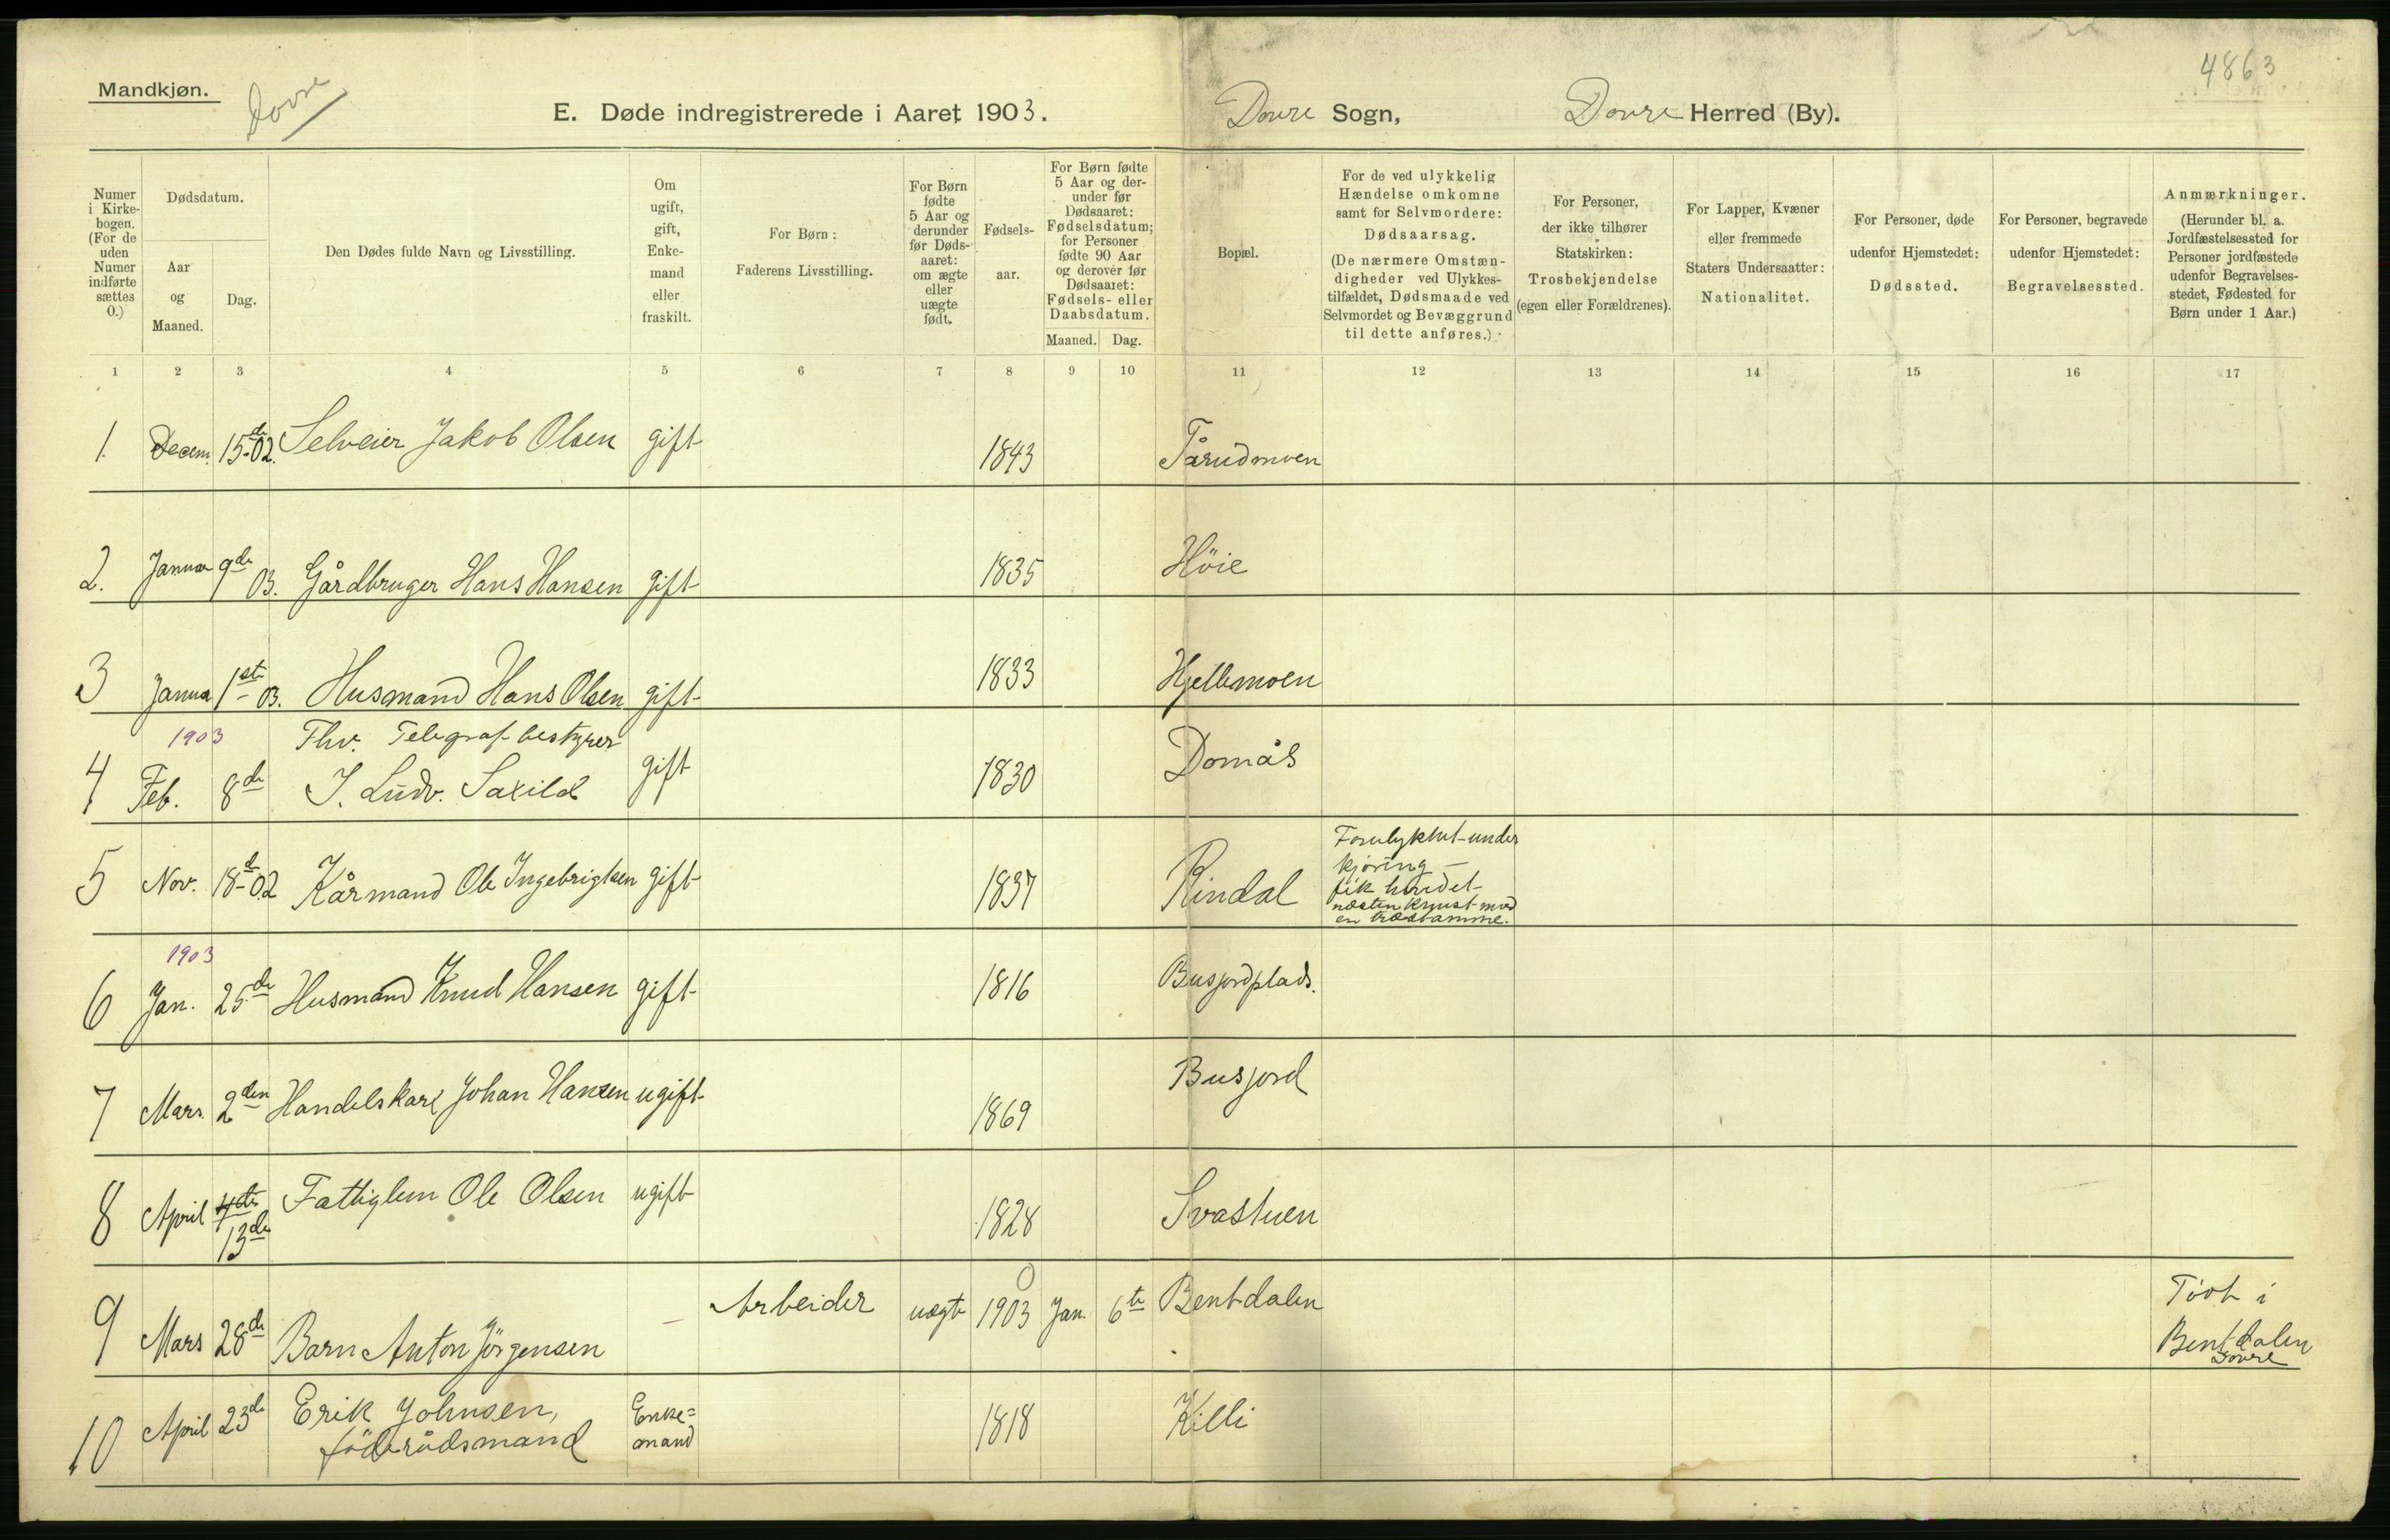 Mandkjøn.
Dovre
E. Døde indregistrerede i Aaret 1903.
Dovre Sogn,
Dovre Herred (By).
4863
Numer i Kirkebogen. (For de uden Numer indførte sættes 0.)
Dødsdatum.
Aar og Maaned.
Dag.
Den Dødes fulde Navn og Livsstilling.
Om ugift, gift, Enkemand eller fraskilt.
For Børn: Faderens Livsstilling.
For Børn fødte 5 Aar og derunder før Dødsaaret: om ægte eller uægte født.
Fødselsaar.
For Børn fødte 5 Aar og derunder før Dødsaaret: Fødselsdatum; for Personer fødte 90 Aar og derover før Dødsaaret: Fødsels- eller Daabsdatum.
Maaned. Dag.
Bopæl.
For de ved ulykkelig Hændelse omkomne samt for Selvmordere: Dødsaarsag. (De nærmere Omstændigheder ved Ulykkestilfældet, Dødsmaade ved Selvmordet og Bevæggrund til dette anføres.)
For Personer, der ikke tilhører Statskirken: Trosbekjendelse (egen eller Forældrenes).
For Lapper, Kvæner eller fremmede Staters Undersaatter: Nationalitet.
For Personer, døde udenfor Hjemstedet: Dødssted.
For Personer, begravede udenfor Hjemstedet: Begravelsessted.
Anmærkninger. (Herunder bl. a. Jordfæstelsessted for Personer jordfæstede udenfor Begravelsesstedet, Fødested for Børn under 1 Aar.)
1 2 3 4 5 6 7 8 9 10 11 12 13 14 15 16 17
1 Decem. 15de 02. Selveier Jakob Olsen gift 1843 Tårudmoen
2. Januar 9de 03. Gårdbruger Hans Hansen gift 1835 Höie
3 Janua 1ste 03. Husmand Hans Olsen gift 1833 Hjellemoen
1903 Fhv. Telegrafbestyrer
4 Feb. 8de J. Ludv. Saxild gift 1830 Domås
5 Nov. 18de 02 Kårmand Ole Ingebrigtsen gift 1837 Rindal
Forulykket under
kjøring –
fik hovdet
næsten knust mod
en trædstamme.
1903
6 Jan. 25de Husmand Knud Hansen gift 1816 Busjordplads.
7 Mars. 2den Handelskarl Johan Hansen ugift 1869 Busjord
8 April 4de 13de Fattiglem Ole Olsen ugift 1828 Svastuen
0
9 Mars 28de Barn Anton Jörgensen – Arbeider uægte 1903 Jan. 6te Bentdalen
Födt i
Bentdalen
Dovre
10 April 23de Erik Johnsen, Enke= 1818 Killi
föderådsmand mand